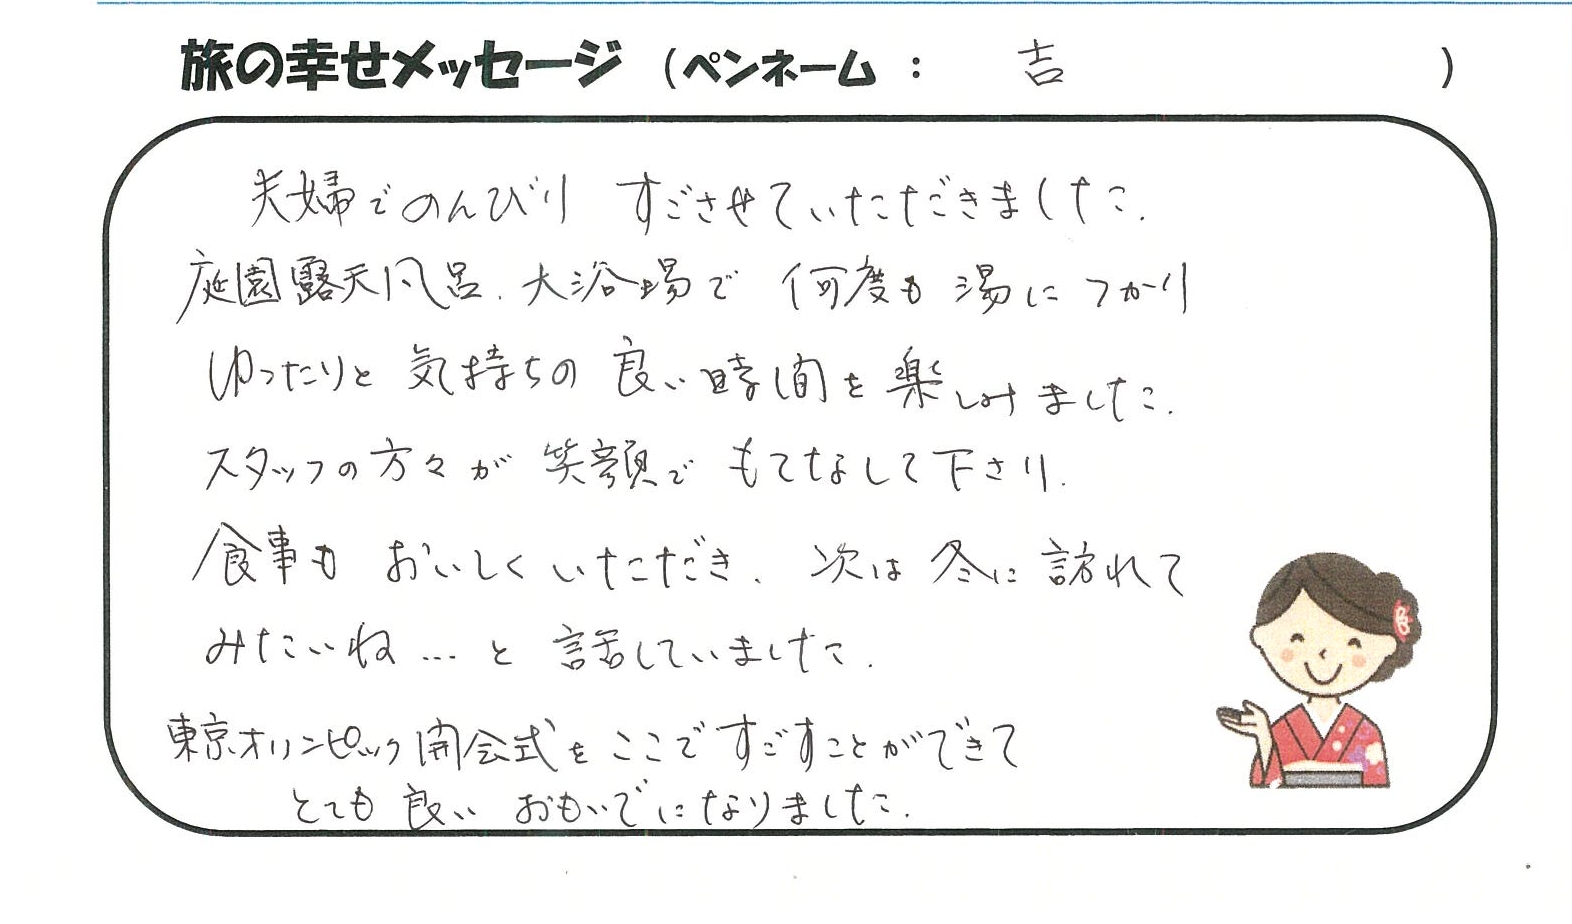 旅の幸せメッセージ (ペンネーム : 吉 )
夫婦でのんびり すごさせていただきました.
庭園露天風呂. 大浴場で 何度も 湯に つかり
ゆったりと 気持ちの 良い 時間を 楽しみました.
スタッフの方々が 笑顔で もてなして下さり.
食事も おいしくいただき. 次は 冬に 訪れて
みたいね... と 話していました.
東京オリンピック開会式を ここで すごすことができて
とても 良い おもいでになりました.